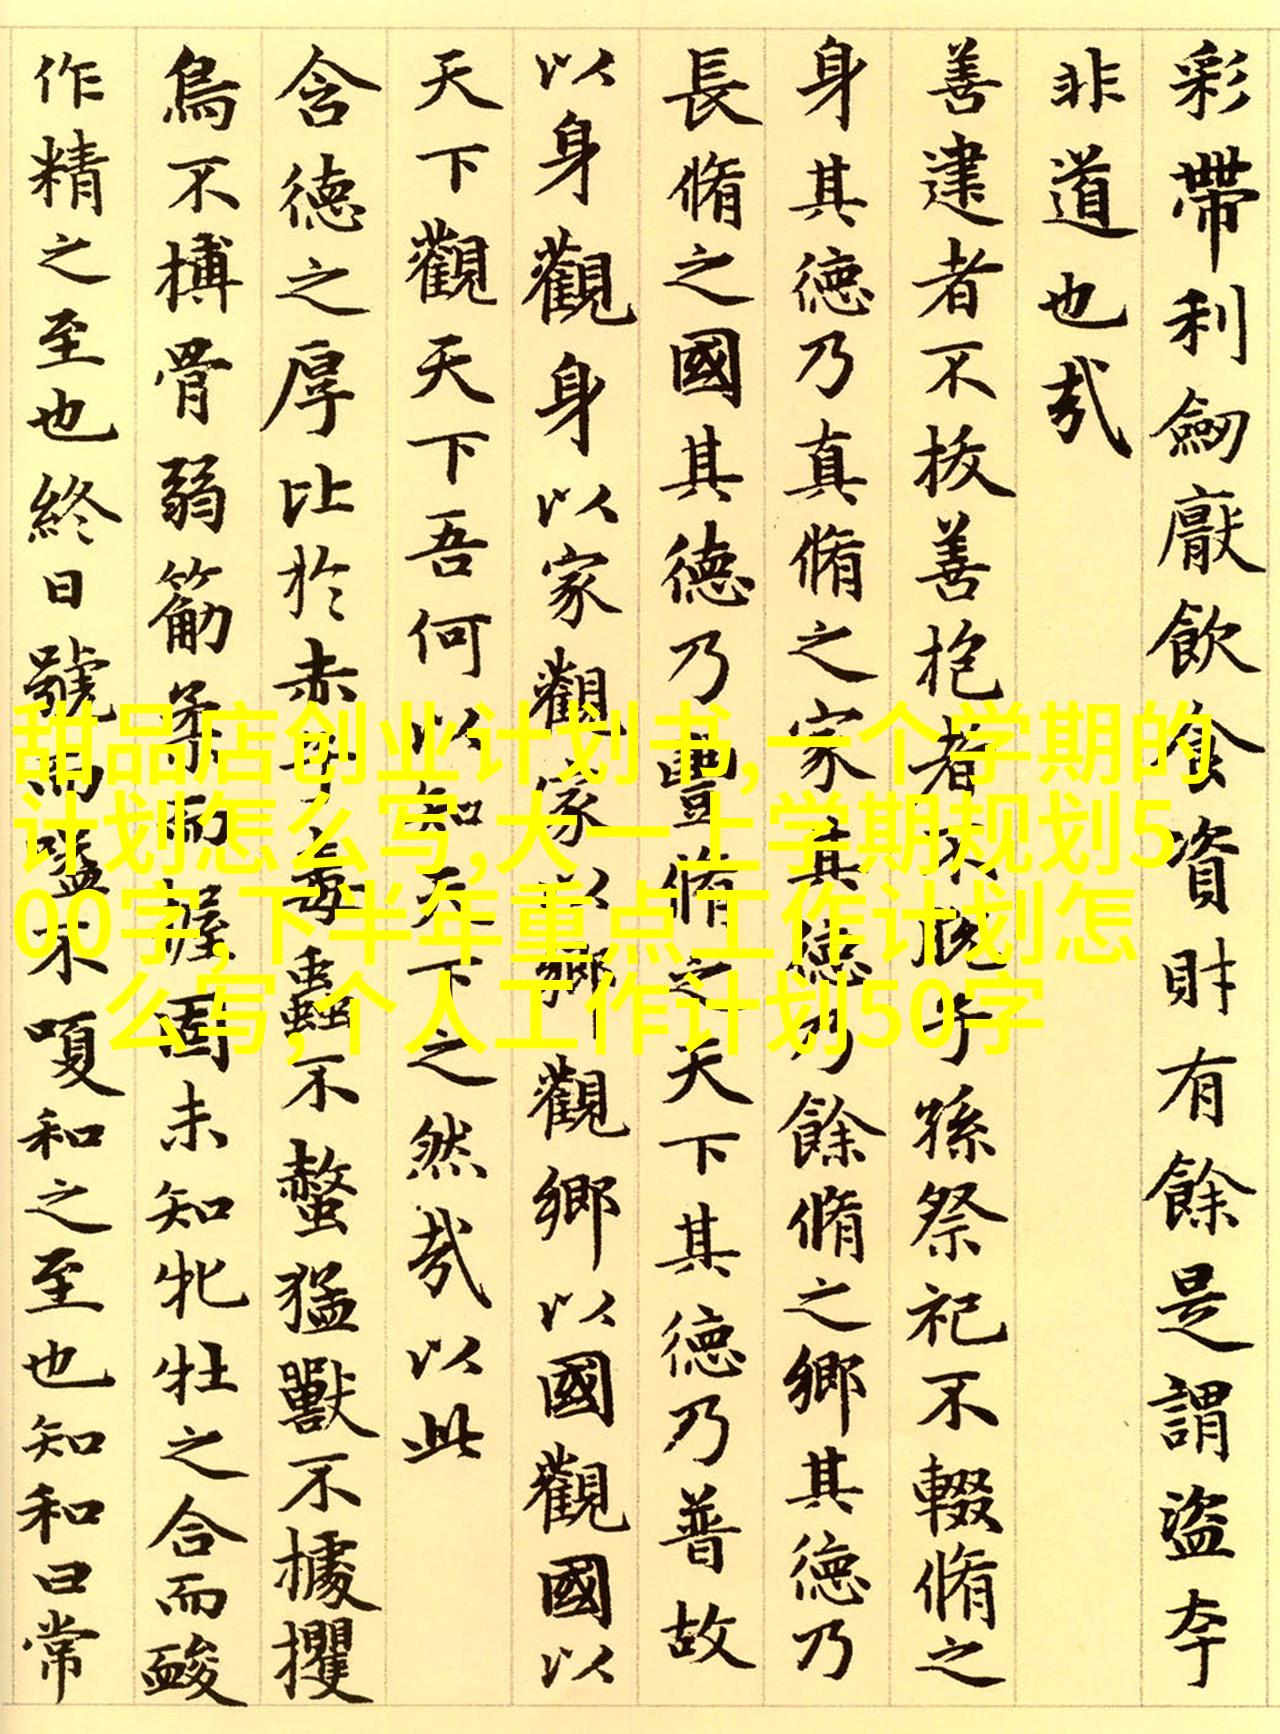 彩帶利劒厭飲食資財有餘是謂盜夸
非道也哉
善建者不拔善抱者不脫子孫祭祀不輟脩之
身其德乃真脩之家其德乃餘脩之鄉其德乃
長脩之國其德乃豐脩之天下其德乃普故
以身觀身以家觀家以鄉觀鄉以國觀國以
天下觀天下吾何以知天下之然哉以此
含德之厚比於赤子毒蟲不螫猛獸不據攫
鳥不搏骨弱筋柔而握固未知牝牡之合而
作精之至也終日號而嗌不嗄和之至也知和曰常
甜品店创业计划书,一个学期的
计划怎么写,大一上学期规划5
00字,下半年重点工作计划怎
么写,个人工作计划50字